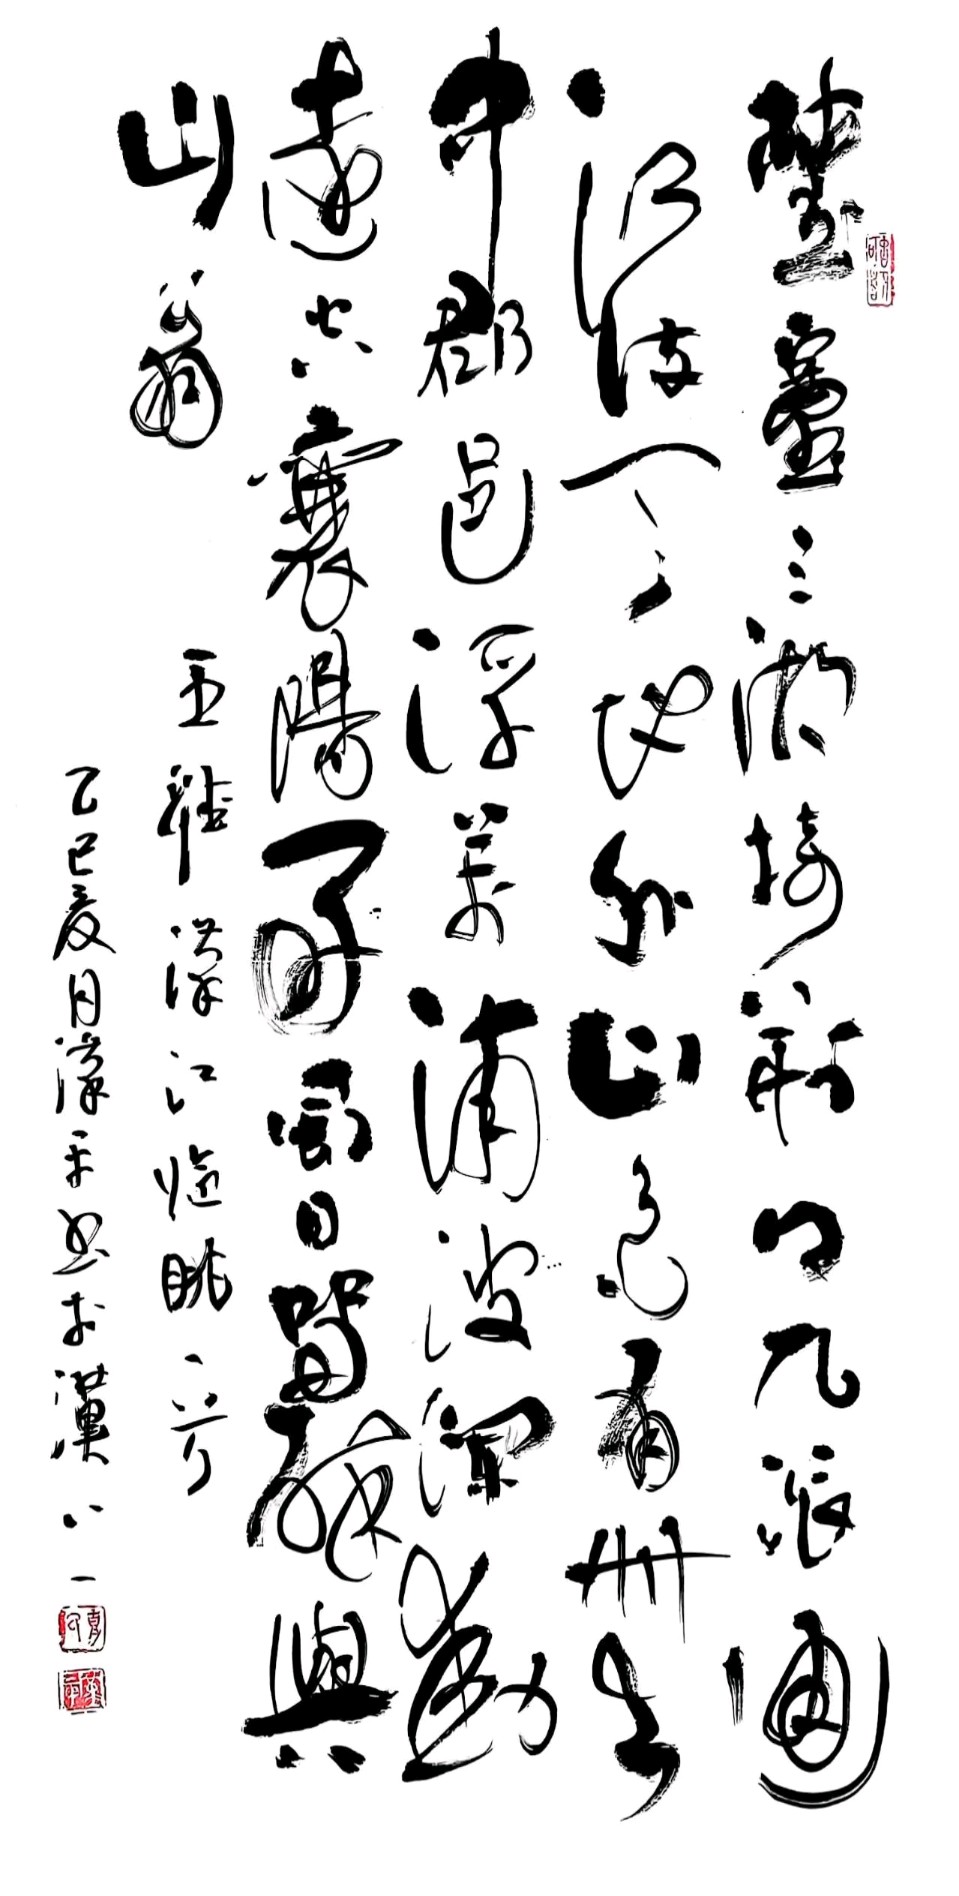 楚塞三湘接荆門九派通
江流天地外山色有無
中郡邑浮前浦波瀾動
遠空襄陽好風日留醉與
山翁
王維漢江臨眺
乙巳夏月平書於漢八一